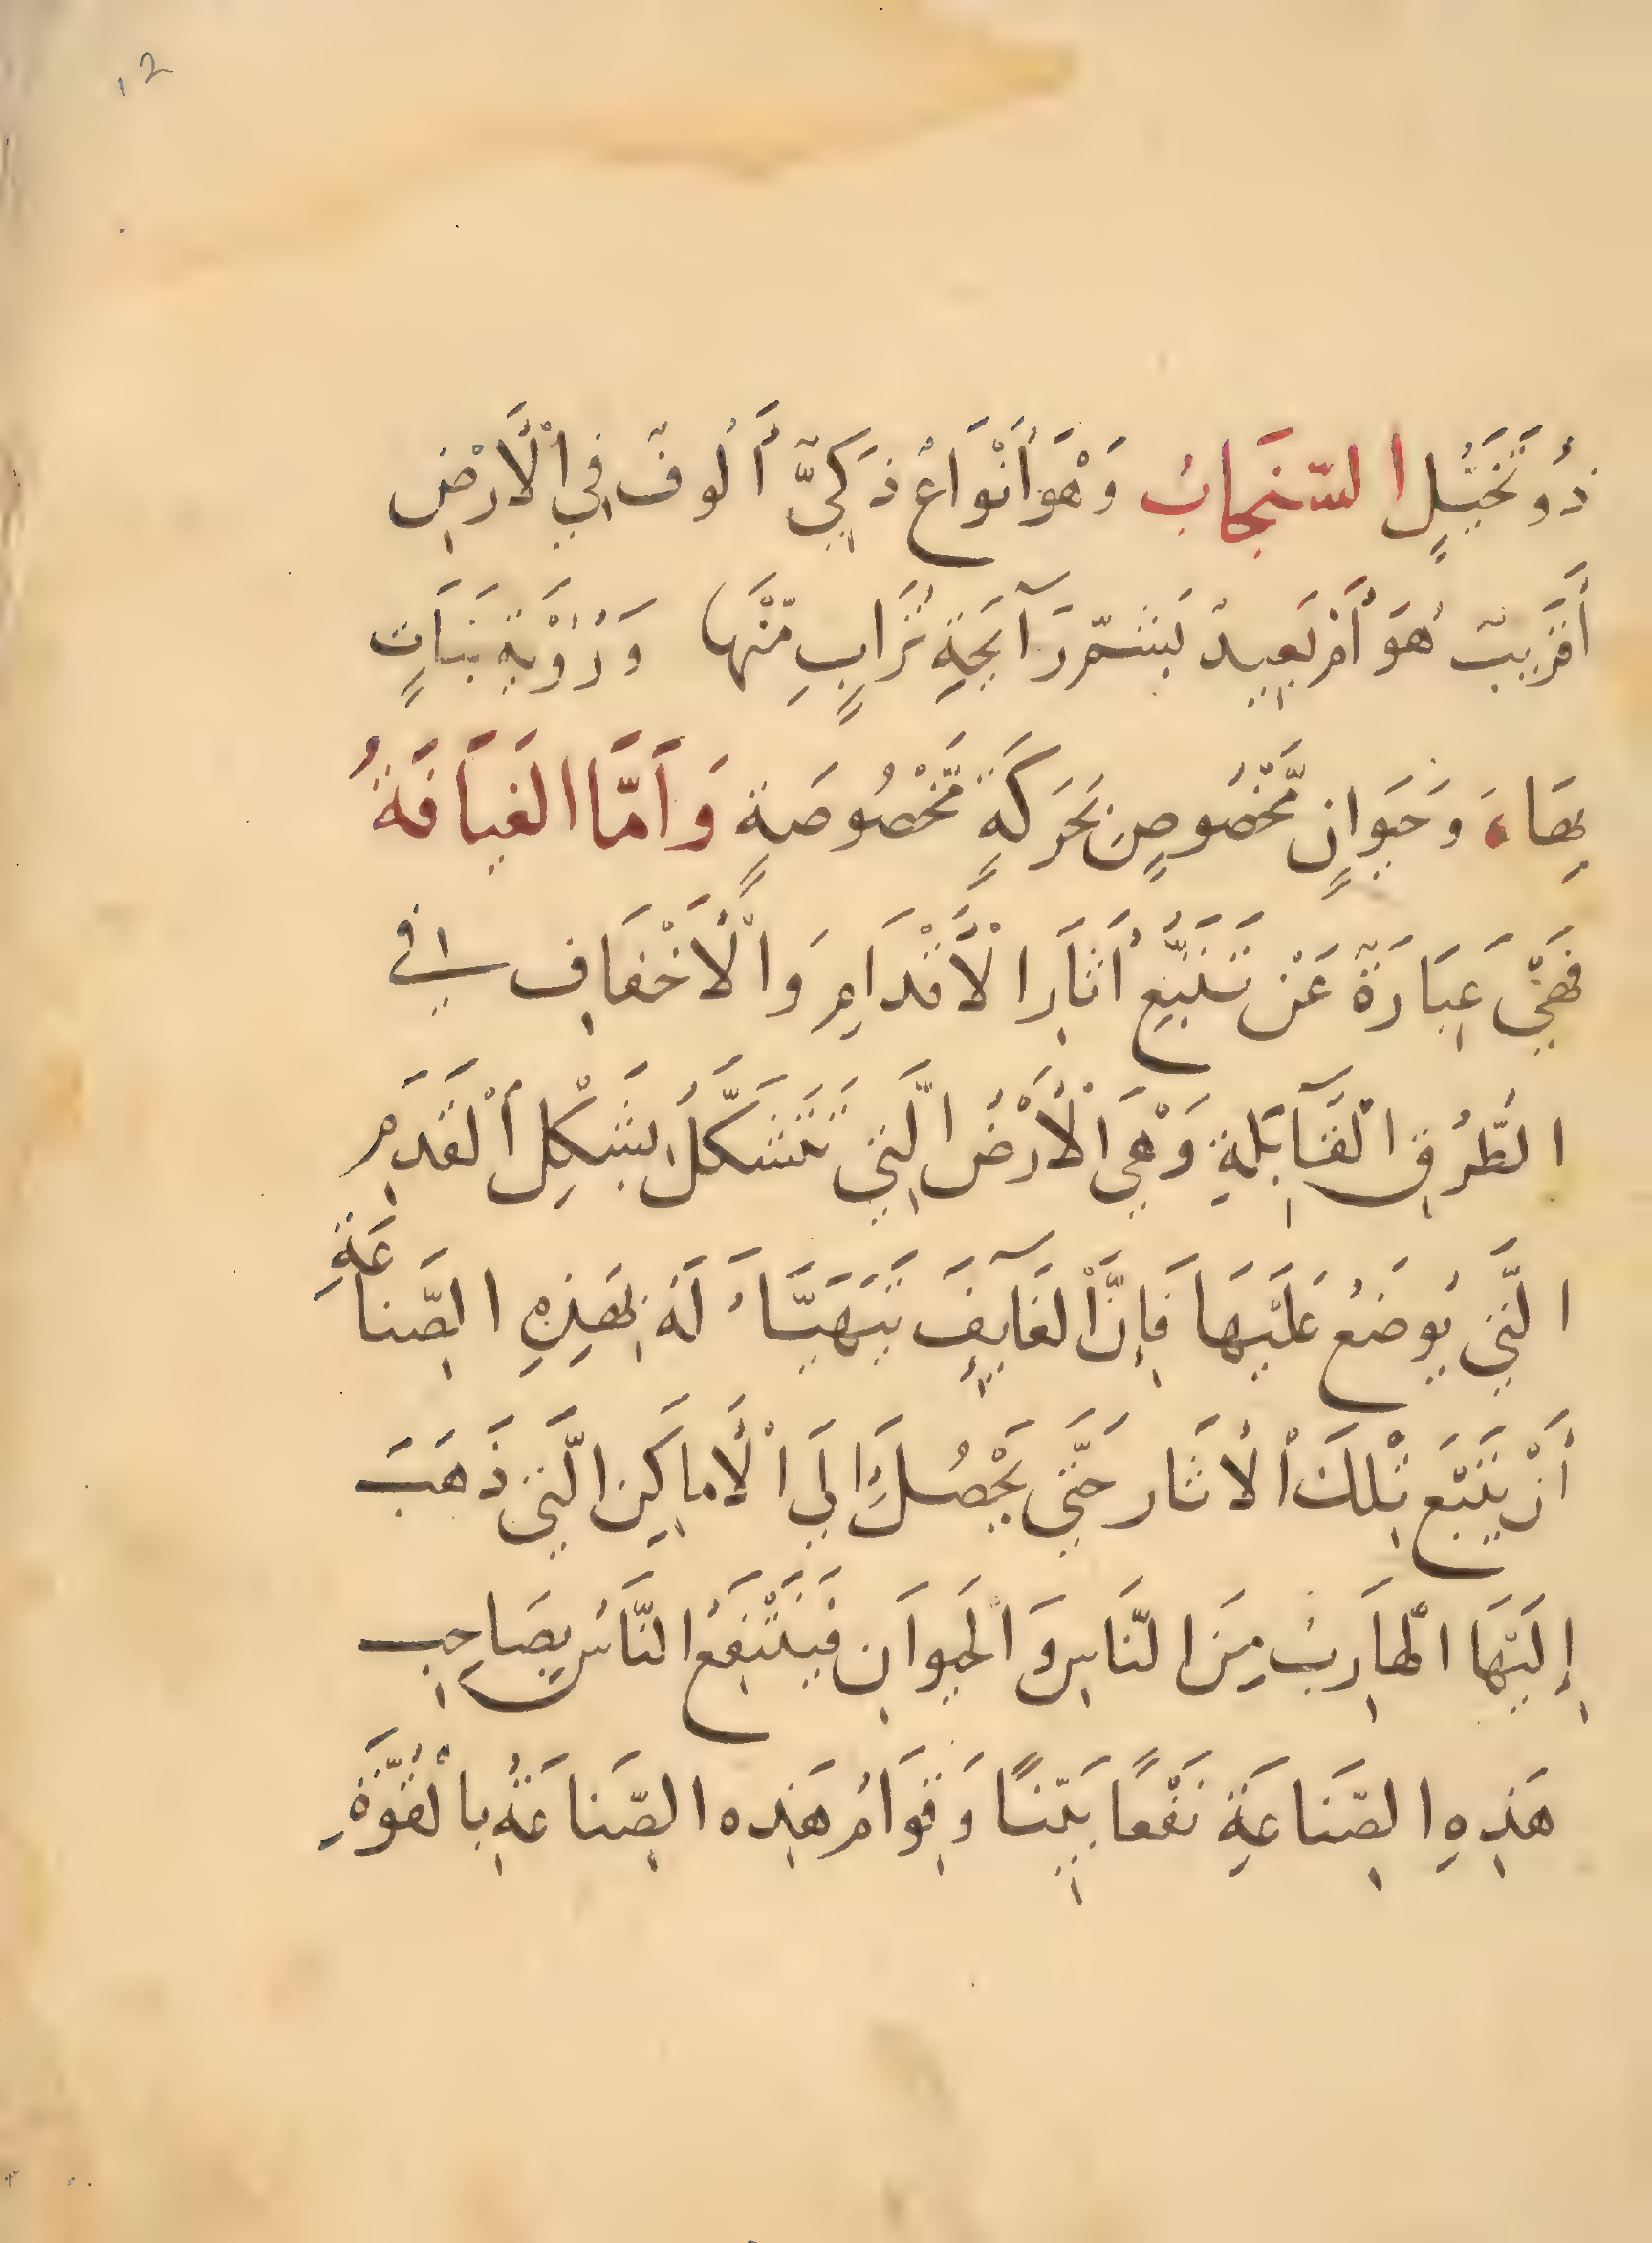 ١2
ذُو تَخَيُّلٍ السّنجَابُ وَهْوَ أَنْوَاعٌ ذَكِيٌّ أَلُوفٌ فِي الْأَرْضِ
أَقَرِيبٌ هُوَ أَمْ بَعِيدٌ بَشَمِّ رَآيِحَةِ تُرَابٍ مِّنْهَا وَرُؤْيَةِ نَبَاتٍ
بِهَا، وَحَيَوانٍ مَّخْصُوصٍ بَحَرَكَةٍ مَّخْصُوصَةٍ وَأَمَّا الغيَافَةُ
فَهِيَّ عِبَارَةٌ عَنْ تَتَبُّعِ أَثَارِ الْأَقْدَامِ وَالْأَخْفَافِ في
الطُّرُقِ الْقَآبِلَةِ وَهْيَ الْأَرْضُ الَّتِي تَتَشَكَّلُ بِشَكْلِ الْقَدَمِ
الَّتِي يُوضَعُ عَلَيْهَا فَإِنَّ الغَآيِفَ يَتَهَيَّأُ لَهُ بِهَذِهِ الصِّنَاعَةِ
أَنْ يَتَتَبَّعَ تِلْكَ الْأثَار حَتَّي يَحْصُلَ إِلَي الْأَماكِنِ الَّتِي ذَهَبَ
إِلَيْهَا الْهَارِبُ مِنَ النَّاسِ وَالْحَيوَانِ فَيَنْتَفِعُ النَّاسُ بِصَاحِبِ
هَذِهِ الصِّنَاعَةِ نَفْعًا بَيِّنًا وَقِوَامُ هَذِه الصِّنَاعَةِ بِالْقُوَّةِ